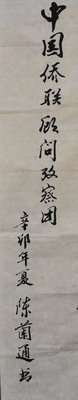 中国侨联顾问考察团
辛卯年夏 陈兰通书